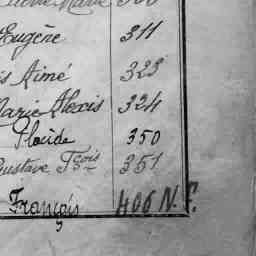 Marie 300
Eugène 311
is Aimé 323
Marie Alexis 324
Placide 350
Gustave Fçois 351
François 406 N. F.